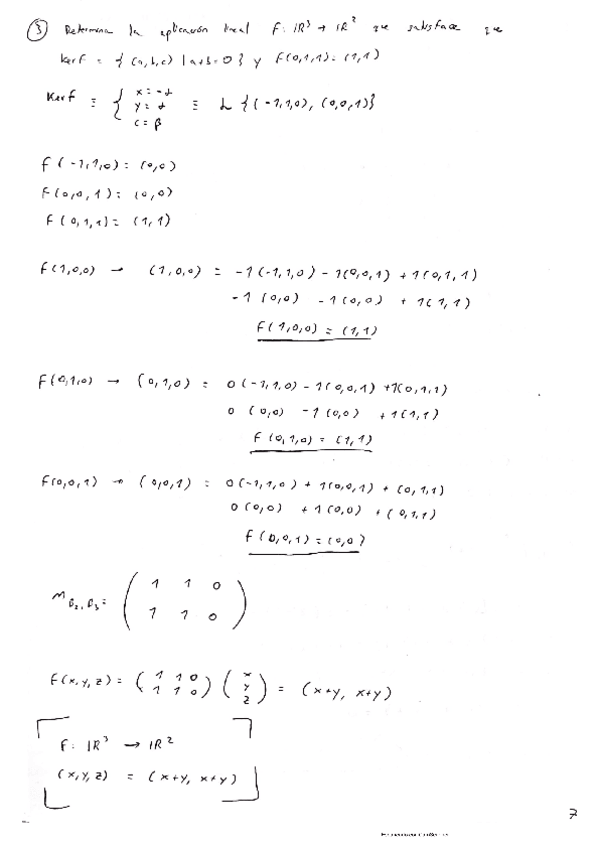 ③ Determina la aplicación lineal F: IR³ → IR² que satisface que
Kerf = { (a,b,c) | a+b=0 } y F(0,1,1)=(1,1)
Kerf ≡ { x = -α
y = α
c = β
≡ L {(-1,1,0), (0,0,1)}
F(-1,1,0) = (0,0)
F(0,0,1) = (0,0)
F(0,1,1) = (1,1)
F(1,0,0) → (1,0,0) = -1(-1,1,0) - 1(0,0,1) + 1(0,1,1)
-1 (0,0) -1(0,0) + 1(1,1)
F(1,0,0) = (1,1)
F(0,1,0) → (0,1,0) = 0(-1,1,0) - 1(0,0,1) + 1(0,1,1)
0 (0,0) -1(0,0) + 1(1,1)
F(0,1,0) = (1,1)
F(0,0,1) → (0,0,1) = 0(-1,1,0) + 1(0,0,1) + (0,1,1)
0(0,0) + 1(0,0) + (0,1,1)
F(0,0,1) = (0,0)
M B₂,B₃ = ( 1 1 0
1 1 0 )
F(x,y,z) = ( 1 1 0
1 1 0 ) ( x
y
z ) = (x+y, x+y)
F: IR³ → IR²
(x,y,z) = (x+y, x+y)
7